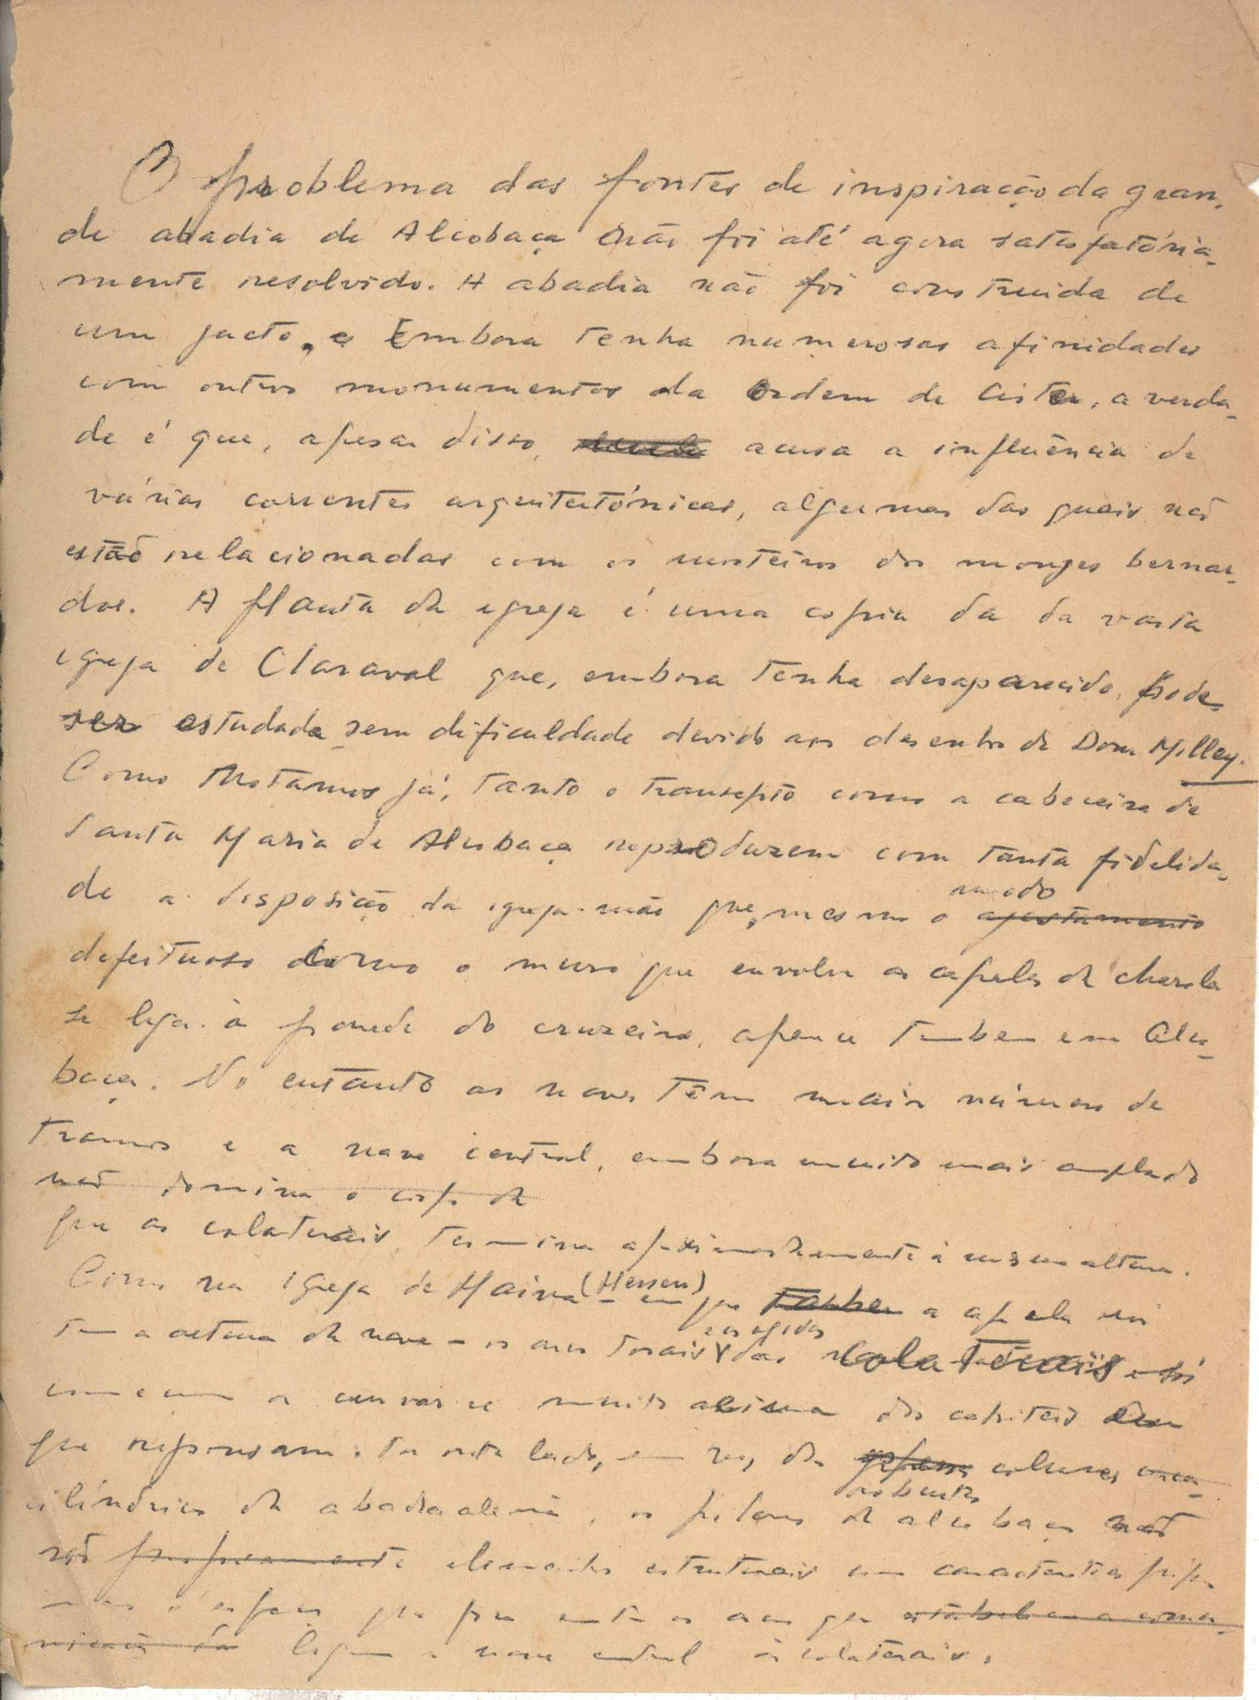 O problema das fontes de inspiração da gran-
de abadia de Alcobaça não foi até agora satisfatória-
mente resolvido. A abadia não foi construida de
um jacto. e Embora tenha numerosas afinidades
com outros monumentos da Ordem de Cister, a verda-
de é que, apesar disso, acusa a influência de
várias correntes arquitectónicas, algumas das quais não
estão relacionadas com os mosteiros dos monges bernar-
dos. A planta da igreja é uma copia da da vasta
igreja de Claraval que, embora tenha desaparecido, pode
ser estudada sem dificuldade devido aos desenhos de Dom Milley.
Como Notámos já, tanto o transepto como a cabeceira de
Santa Maria de Alcobaça reproduzem com tanta fidelida-
de a disposição da igreja-mãe que, mesmo o ajustamento
modo
defeituoso como o muro que envolve as capelas da charola
se liga à parede do cruzeiro, aparece tambem em Alco-
baça. No entanto as naves têm maior número de
tramos e a nave central, embora muito mais ampla do
não domina o corpo da
que as colaterais, termina aproximadamente à mesma altura.
Como na igreja de Haina (Hessen) – em que a capela
tem a altura da nave – os arcos torais das colaterais só
começam a curvar-se muito acima dos capiteis em
que repousam. Por outro lado, em vez das colunas
robustas
cilíndricas da abadia alemã, os pilares de Alcobaça não
são propriamente elementos estruturais com caracteristicas
mas o espaço que fica entre os arcos que estabelecem a comu-
nicação da ligam a nave central às colaterais.